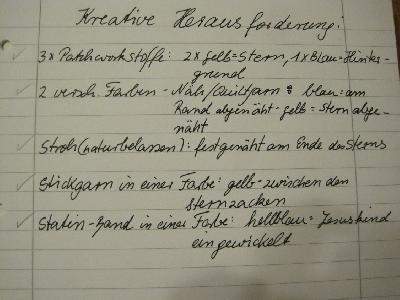 Kreative Herausforderung:
3x Patchworkstoffe: 2x gelb=Stern, 1x Blau=Hinter-
grund
2 versch. Farben - Näh/Quiltgarn: blau-am
Rand abgenäht - gelb = Stern abge-
näht
Stroh(naturbelassen): festgenäht am Ende des Sterns
Stickgarn in einer Farbe: gelb-zwischen den
Sternzacken
Statin-Band in einer Farbe: hellblau= Jesuskind
eingewickelt